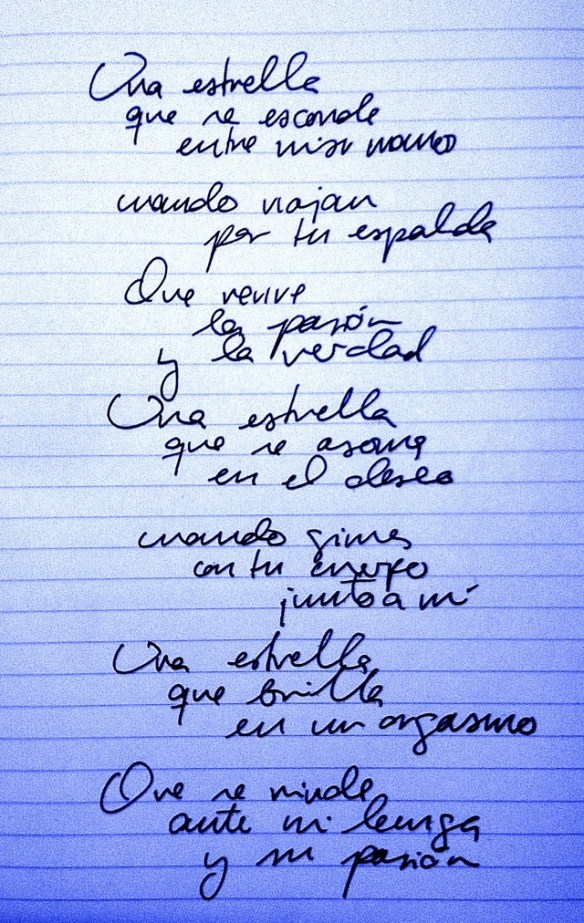 Una estrella
que se esconde
entre mis manos
cuando viajan
por tu espalda
Que revive
la pasión
y la verdad
Una estrella
que se asoma
en el deseo
cuando gimes
con tu cuerpo
junto a mí
Una estrella
que brilla
en un orgasmo
Que se rinde
ante mi lengua
y su pasión